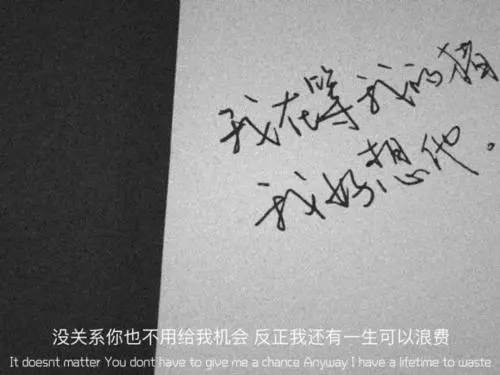 我在等我的猪
我好想他。
没关系你也不用给我机会 反正我还有一生可以浪费
It doesnt matter You dont have to give me a chance Anyway I have a lifetime to waste